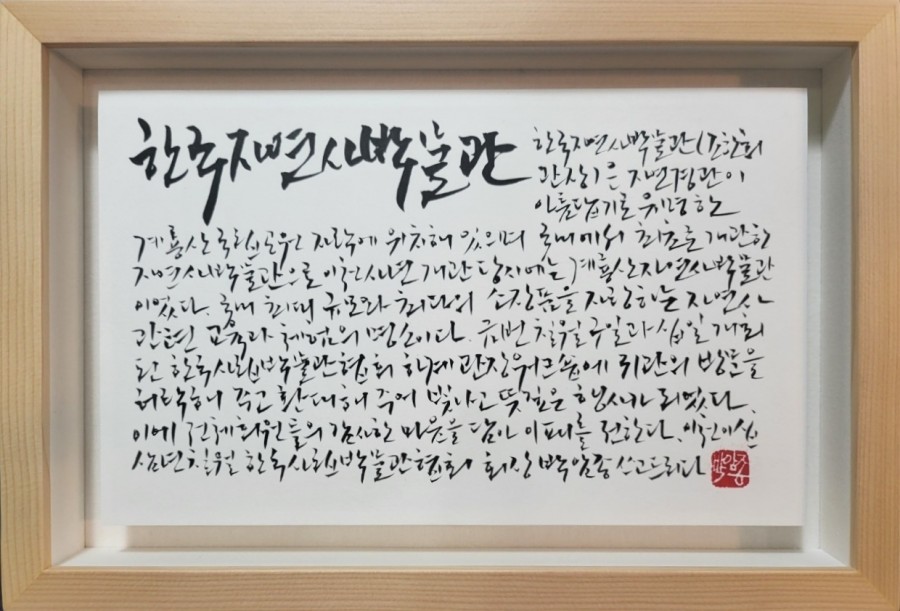 한국자연사박물관
한국자연사박물관(조한희
관장)은 자연경관이
아름답기로 유명한
계룡산국립공원 자락에 위치해 있으며 국내에서 최초로 개관한
자연사박물관으로 이천사년 개관 당시에는 계룡산자연사박물관
이었다. 국내 최대 규모와 최다의 소장품을 자랑하는 자연사
관련 교육과 체험의 명소이다. 금번 칠월 구일과 십일 개최
된 한국사립박물관협회 하계 관장워크숍에 귀관의 방문을
허락해 주고 환대해 주어 빛나고 뜻깊은 행사가 되었다.
이에 전체회원들의 감사한 마음을 담아 이패를 전한다. 이천이십
삼년 칠월 한국사립박물관협회 회장 박암종 쓰고드리다
박암종